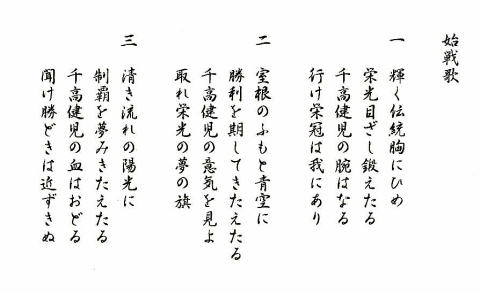 始戦歌
一 輝く伝統胸にひめ
栄光目ざし鍛えたる
千高健児の腕はなる
行け栄冠は我にあり
二 室根のふもと青空に
勝利を期してきたえたる
千高健児の意気を見よ
取れ栄光の夢の旗
三 清き流れの陽光に
制覇を夢みきたえたる
千高健児の血はおどる
聞け勝どきは近ずきぬ